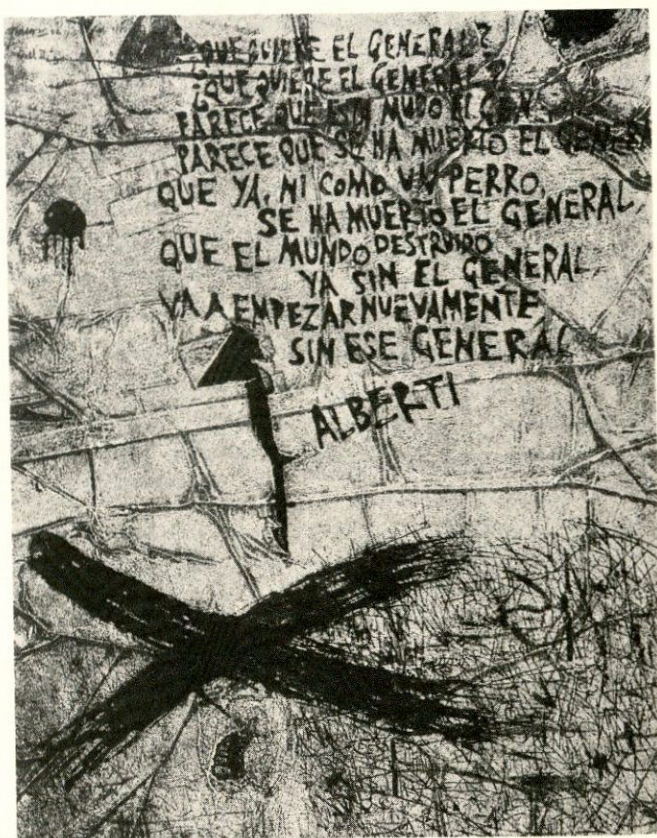 ¿QUE QUIERE EL GENERAL?
¿QUE QUIERE EL GENERAL?
PARECE QUE ESTA MUDO EL GEN
PARECE QUE SE HA MUERTO EL GENERA
QUE YA, NI COMO UN PERRO,
SE HA MUERTO EL GENERAL,
QUE EL MUNDO DESTRUIDO
YA SIN EL GENERAL,
VA A EMPEZAR NUEVAMENTE
SIN ESE GENERAL
ALBERTI